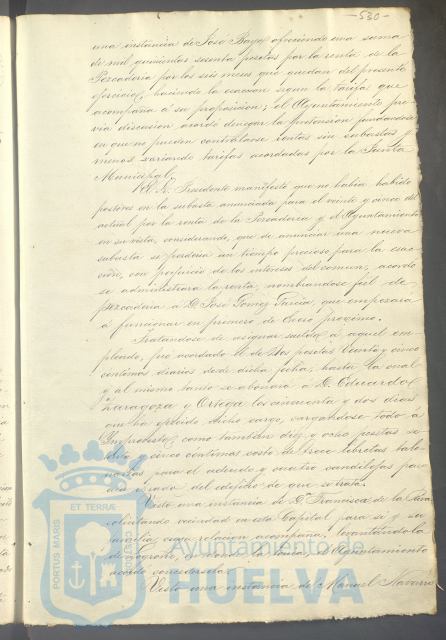 -530-
una instancia de José Baya ofreciendo una suma
de mil quinientas sesenta pesetas por la renta de la
Pescaderia por los seis meses que quedan del presente
ejercicio, haciendo la exaccion segun la tarifa que
acompaña á su proposicion; el Ayuntamiento pre
via discusion acordó denegar la pretension fundandose
en que no pueden contratarse rentas sin subastas y
menos variando tarifas acordadas por la Junta
Municipal.
El Sr. Presidente manifestó que no habia habido
postores en la subasta anunciada para el veinte y cinco del
actual por la renta de la Pescaderia y el Ayuntamiento
en su vista, considerando, que de anunciar una nueva
subasta se perderia un tiempo precioso para la exac
cion, con perjuicio de los intereses del comun, acordó
se administrara la renta, nombrandose fiel de
pescaderia á D. José Gomez Garcia, que empezara
á funcionar en primero de Enero proximo.
Tratandose de asignar sueldo á aquel em
pleado, fué acordado el de dos pesetas veinte y cinco
centimos diarios desde dicha fecha, hasta la cual
y al mismo tanto se abonará á D. Eduardo
Zaragoza y Ortega los cincuenta y dos dias
que ha ejercido dicho cargo, cargandose todo á
Imprevistos, como tambien diez y ocho pesetas se
tenta y cinco centimos costo de trece libretas
para el adeudo y cuatro candilejas para
del edificio de que se trata.
Vista una instancia de D. Francisco de la
solicitando vecindad en esta Capital para sí y su
familia cuya relacion acompaña, levantandola
de Logroño, el Ayuntamiento
acordó concedersela.
Vista una instancia de Manuel Navarro
PORTUS MARIS
ET TERRÆ
CUSTODIA
Ayuntamiento de
HUELVA